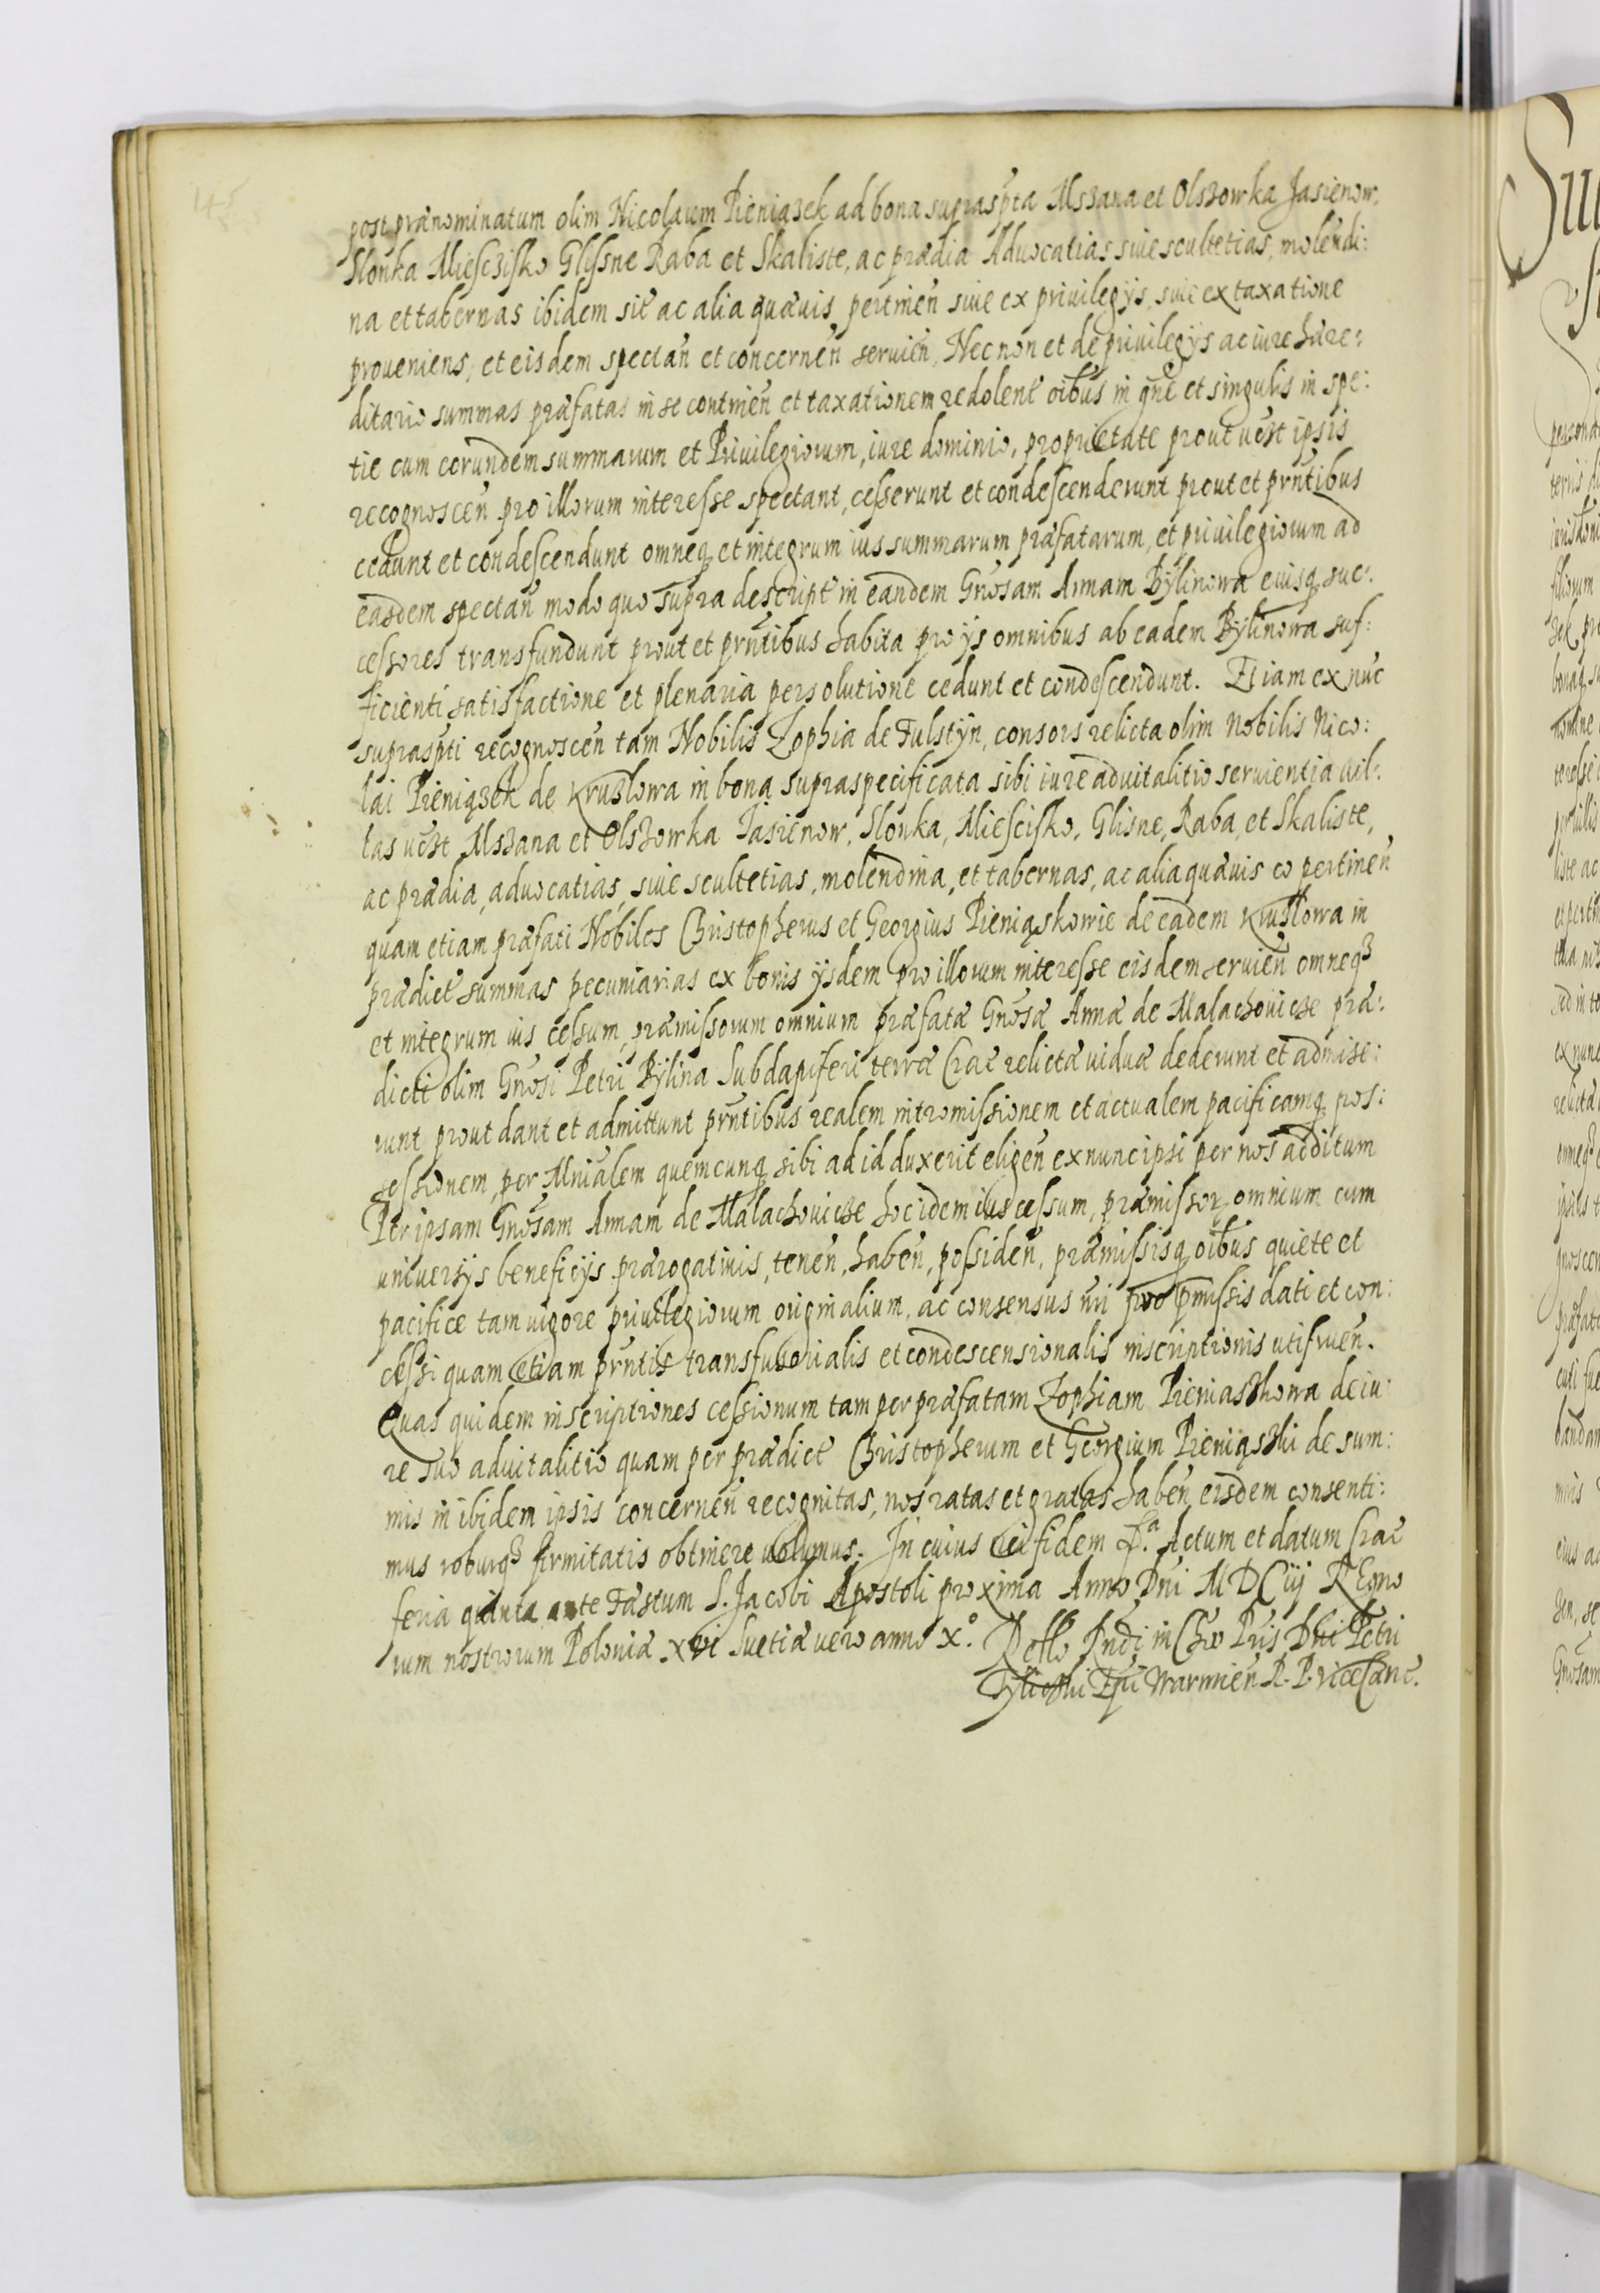 145
post prænominatum olim Nicolaum Pieniązek ad bona suprasp̃ta Mszana et Olszowka Jasienow,
Slonka Miesczisko Glisne Raba et Skaliste, ac prædia Aduocatias siue scultetias, molendi:
na et tabernas ibidem sit̃ ac alia quæuis pertineñ siue ex priuilegijs, siue ex taxatione
proueniens, et eisdem spectañ et concerneñ seruieñ, Nec non et de priuilegijs ac iure hære:
ditario summas præfatas in se contineñ et taxationem redolent̃ oĩbus in gñe et singulis in spe:
tie cum eorundem summarum et Priuilegiorum, iure dominio, proprietate prout vczt ipsis
recognosceñ pro illorum interesse spectant, cesserunt et condescenderunt prout et prñtibus
cedunt et condescendunt omneq, et integrum ius summarum præfatarum, et priuilegiorum ad
easdem spectañ modo quo supra descript̃ in eandem Gñosam Annam Bÿlinowa eiusq, suc:
cessores transfundunt prout et prñtibus habita pro ijs omnibus ab eadem Bÿlinowa suf:
ficienti satisfactione et plenaria persolutione cedunt et condescendunt. Etiam ex nũc
suprasp̃ti recognosceñ tam Nobilis Zophia de Fulstÿn, consors relicta olim Nobilis Nico:
lai Pieniązek de Kruzlowa in bona supraspecificata sibi iure aduitalitio seruientia vil:
las vczt Mszana et Olszowka Jasienow, Slonka, Miescisko, Glisne, Raba, et Skaliste,
ac prædia, aduocatias, siue scultetias, molendina, et tabernas, ac alia quæuis eo pertineñ
quam etiam præfati Nobiles Christopherus et Georgius Pieniąskowie de eadem Kruzlowa in
prædict̃ summas pecuniarias ex bonis ijsdem pro illorum interesse eisdem seruieñ omneq3
et integrum ius cessum, præmissorum omnium præfatæ Gñosæ Annæ de Malachouicze præ:
dicti olim Gñosi Petri Bÿlina Subdapiferi terræ Crac̃ relictæ viduæ dederunt et admise:
runt prout dant et admittunt prñtibus realem intromissionem et actualem pacificamq, pos:
sessionem, per Mnialem quemcunq, sibi ad id duxerit eligeñ ex nunc ipsi per nos additum
Per ipsam Gñosam Annam de Malachouicze hoc idem ius cessum, præmissor, omnium cum
vniuersijs beneficijs prærogatiuis, teneñ, habeñ, possideñ, præmissisq, oĩbus quiete et
pacifice tam vigore priuilegiorum originalium, ac consensus nr̃i pro p̃missis dati et con:
cessi quam etiam prñtis transfusorialis et condescensionalis inscriptionis vtifrueñ.
Quas quidem inscriptiones cessionum tam per præfatam Zophiam Pieniaszkowa de iu:
re suo aduitalitio quam per prædict̃ Christopherum et Georgium Pieniąszki de sum:
mis in ibidem ipsis concerneñ recognitas, nos ratas et gratas habeñ, eisdem consenti:
mus roburq3 firmitatis obtinere volumus. In cuius rei fidem &ª. Actum et datum Crac̃
feria quinta ante Fæstum S. Jacobi Apostoli proxima Anno Dñi MDCiij REgno
rum nostrorum Poloniæ xvi Suetiæ vero anno x°. Rello Rndi in Chro Pris Dni Petri
Tÿliczki Epi Warmieñ R. P. viceCanc̃.